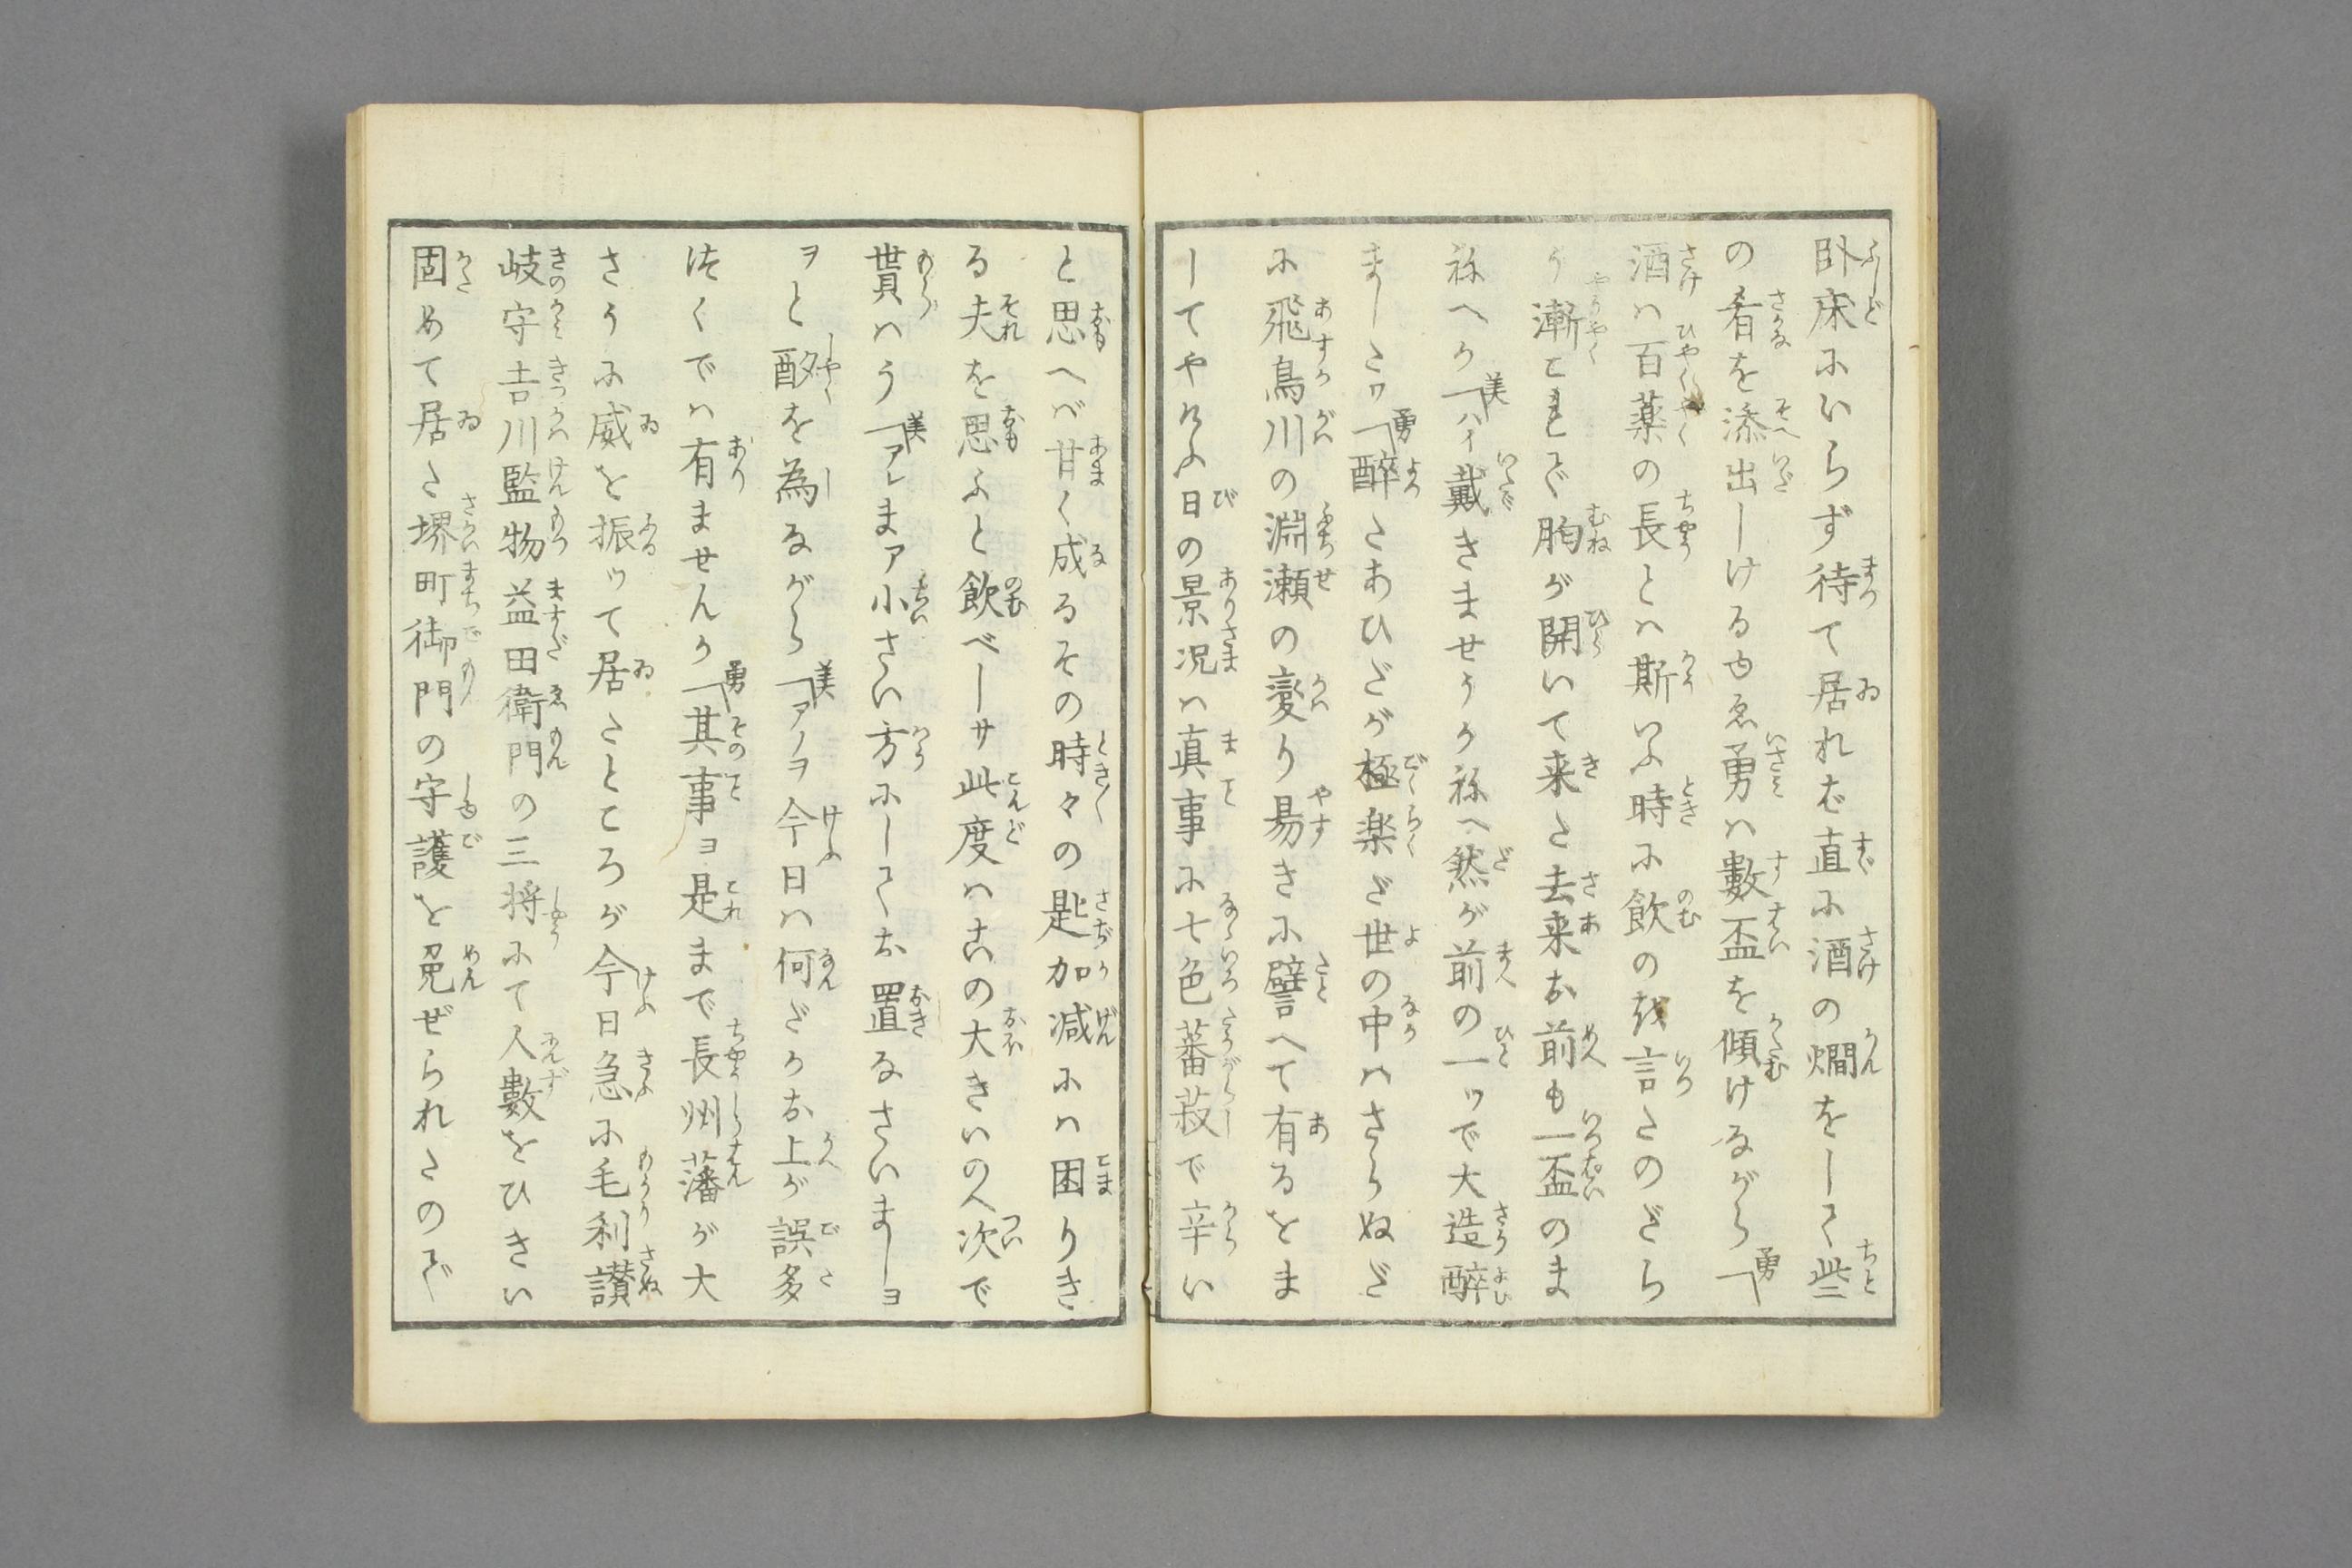 臥床にいらず待て居れば直に酒の燗をして些
の肴を添出しけるゆゑ勇は數盃を傾けながら「勇
酒は百薬の長とは斯いふ時に飲の越言たのだら
う漸こまで胸が開いて来た去来お前も一盃のま
ねへか「美ハイ戴きませうかねへ然が前の一ツで大造醉
ましたヮ「勇醉たあひだが極楽だ世の中はさらぬだ
に飛鳥川の淵瀬の変り易きに譬へて有るをま
してやけふ日の景况は真事に七色蕃菽で辛い
と思へば甘く成るその時々の匙加減には困りき
る夫を思ふと飲べしサ此度は古いの大きいのへ次で
貰はう「美アレまア小さい方にしてお置なさいましヨ
ヲと酌を為ながら「美アノヲ今日は何だかお上が誤多
つくでは有ませんか「勇其事ヨ是まで長州藩が大
さうに威を振ツて居たところが今日急に毛利讃
岐守吉川監物益田衛門の三将にて人數をひきい
固めて居た堺町御門の守護を免ぜられたので